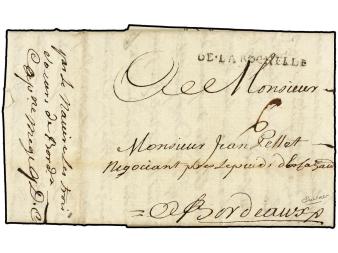 DE·LA ROCHELLE
A Monsieur
6
Monsieur Jean Pellet
Negociant pres le poids
A Bordeaux
par le Navire Les trois
Soeurs de Bordx
Cap. ne